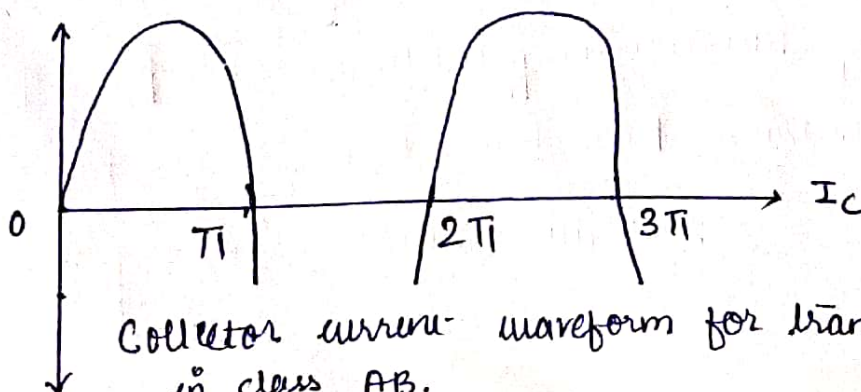 0
π
2π
3π
Ic
Collector current waveform for
in class AB.